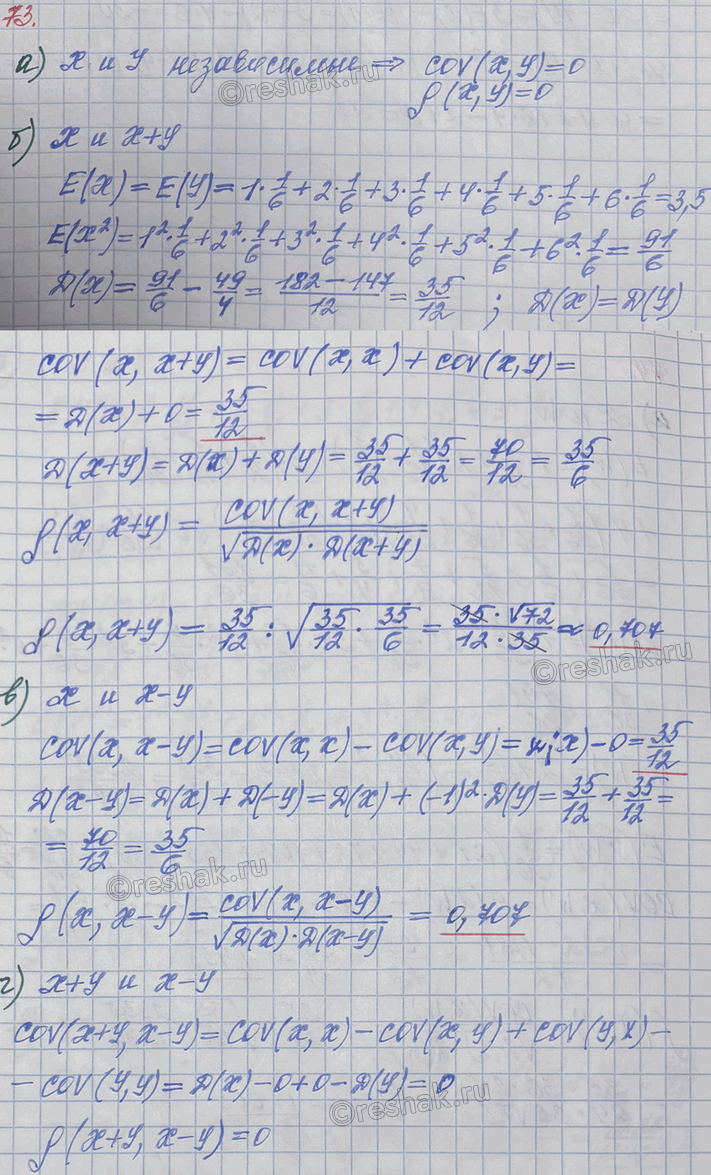 73.
а) X и Y независимые ⇒ cov(X, Y)=0
ρ(X, Y)=0
б) X и X+Y
E(X) = E(Y) = 1·1/6 + 2·1/6 + 3·1/6 + 4·1/6 + 5·1/6 + 6·1/6 = 3,5
E(X²) = 1²·1/6 + 2²·1/6 + 3²·1/6 + 4²·1/6 + 5²·1/6 + 6²·1/6 = 91/6
D(X) = 91/6 − 49/4 = (182 − 147)/12 = 35/12 ; D(X) = D(Y)
cov(X, X+Y) = cov(X, X) + cov(X, Y) =
= D(X) + 0 = 35/12
D(X+Y) = D(X) + D(Y) = 35/12 + 35/12 = 70/12 = 35/6
ρ(X, X+Y) = cov(X, X+Y)/√(D(X)·D(X+Y))
ρ(X, X+Y) = 35/12 : √(35/12 · 35/6) = (35·√72)/(12·35) ≈ 0,707
в) X и X−Y
cov(X, X−Y) = cov(X, X) − cov(X, Y) = X) − 0 = 35/12
D(X−Y) = D(X) + D(−Y) = D(X) + (−1)²·D(Y) = 35/12 + 35/12 =
= 70/12 = 35/6
ρ(X, X−Y) = cov(X, X−Y)/√(D(X)·D(X−Y)) = 0,707
г) X+Y и X−Y
cov(X+Y, X−Y) = cov(X, X) − cov(X, Y) + cov(Y, X) −
− cov(Y, Y) = D(X) − 0 + 0 − D(Y) = 0
ρ(X+Y, X−Y) = 0
©reshak.ru
©reshak.ru
©reshak.ru
©reshak.ru